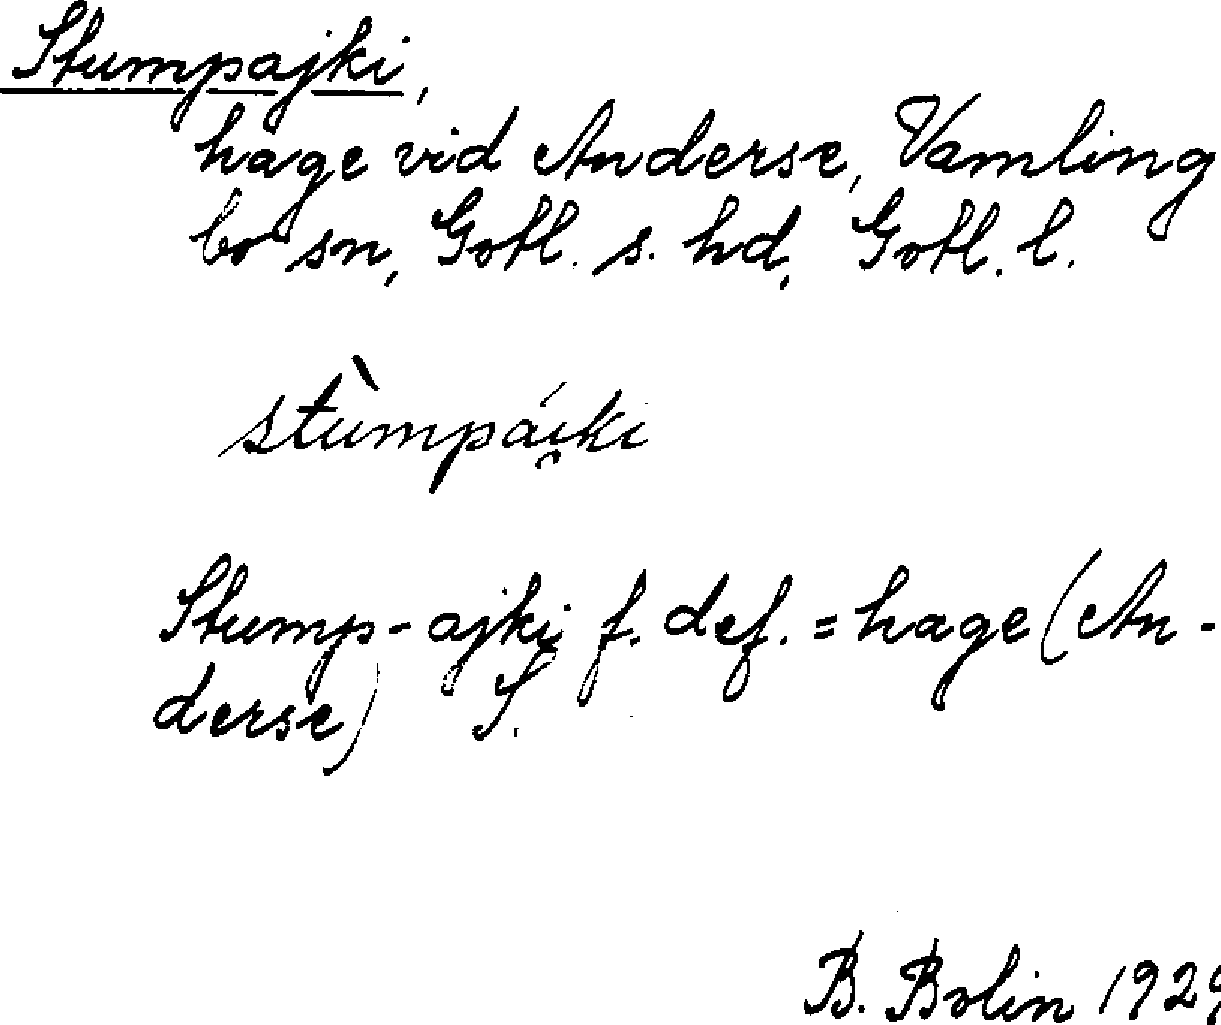 Stumpajki,
hage vid Anderse, Vamling
bo sn, Gotl. s. hd, Gotl. l.
stùmpái̯ki
Stump-ajki f. def. = hage (An-
derse) S.
B. Bolin 1929